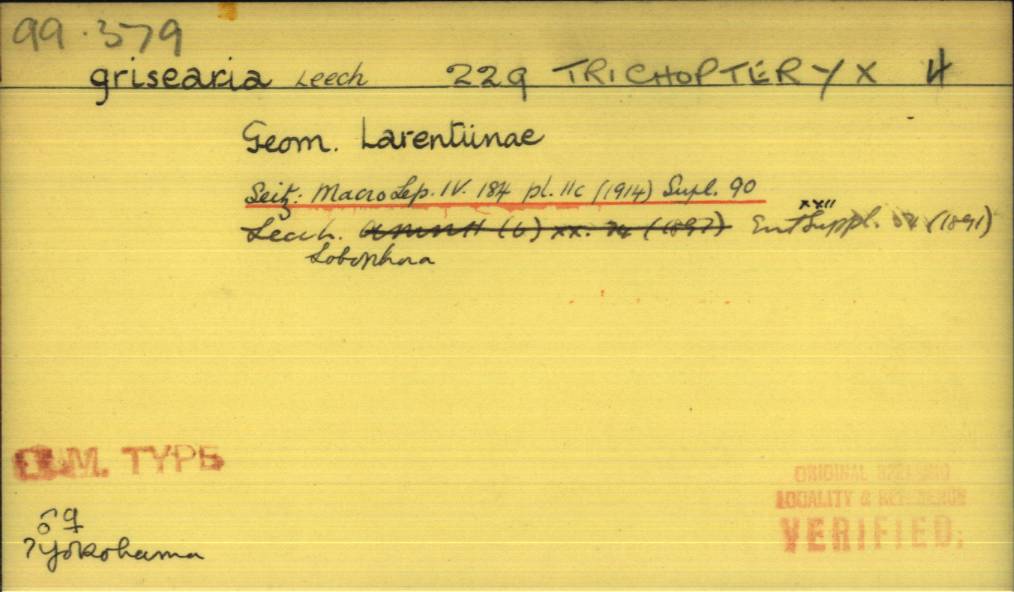 99.379
grisearia Leech 229 TRICHOPTERYX 4
Geom. Larentiinae
Seitz: MacroLep. IV. 184 pl. 11c (1914) Supl. 90
Leech. (6) xx. 74 (1897) Ent Suppl. xxii (1891)
Lobophora
B.M. TYPE
ORIGINAL
LOCALITY & REFERENCE
VERIFIED.
♂♀
?Yokohama